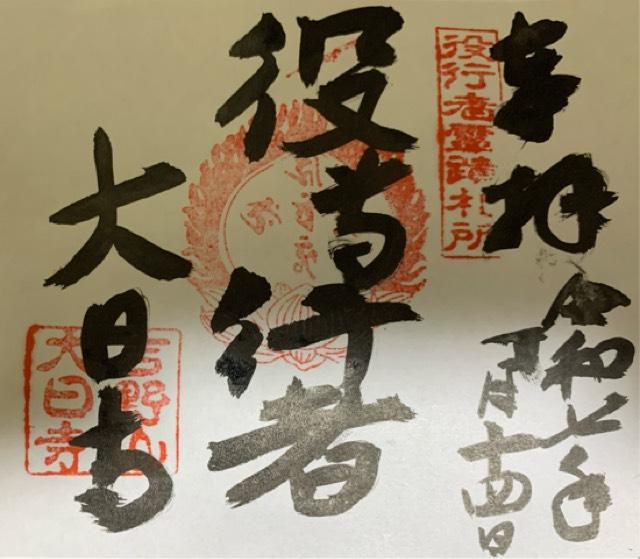 奉拝
令和七年
月十四日
役行者靈蹟札所
役行者
大日寺
吉野山
大日寺